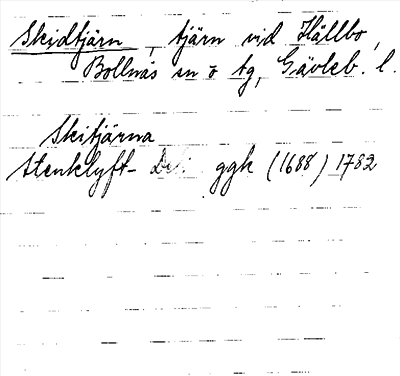 Skidtjärn, tjärn vid Hällbo,
Bollnäs sn o tg, Gävleb. l.
Skitjärna
Stenklyft- ggk (1688) 1782